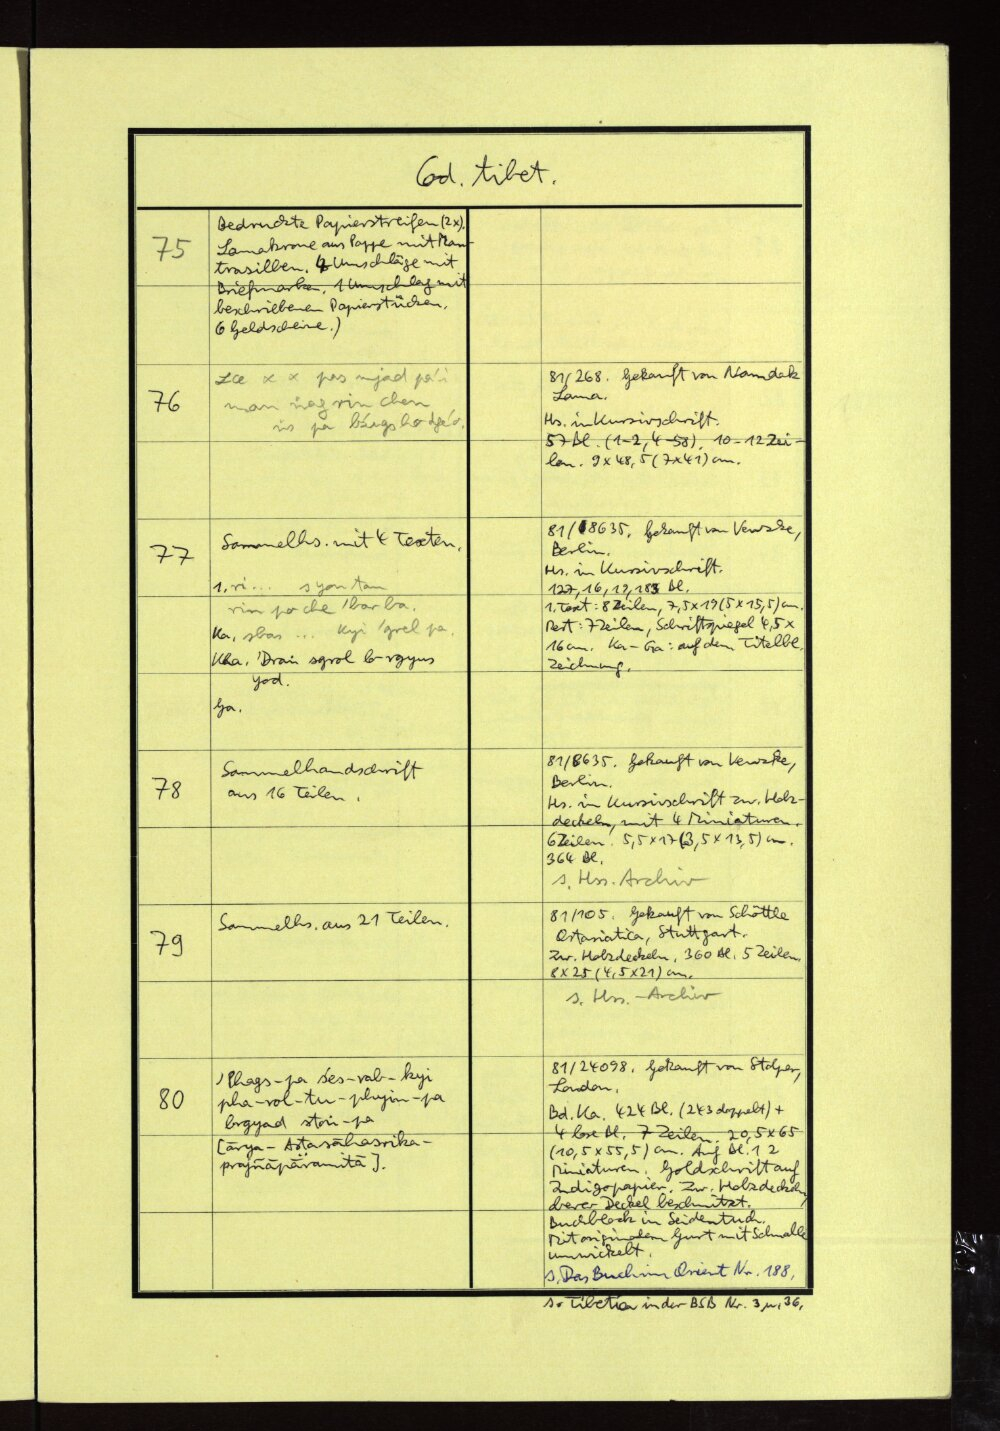 Cod. tibet.
75
Bedruckte Papierstreifen (2x).
Lamakrone aus Pappe mit Man-
trasilben. 4 Umschläge mit
Briefmarken, 1 Umschlag mit
beschriebenen Papierstücken.
6 Geldscheine.)
76
Lce x x pas mjad pa'i
man ṅag rin chen
81/268. Gekauft von Namdak
Lama.
Hs. in Kursivschrift.
57 Bl. (1-2, 4-58). 10-12 Zei-
len. 9 x 48,5 (7x41) cm.
77
Sammelhs. mit 4 Texten.
1. ri... s yon tan
rin po che 'bar ba.
Ka. sbas ... kyi 'grel pa.
Kha. 'Dran sgrol lo rgyus
yod.
Ga.
81/18635. Gekauft von Verwake,
Berlin.
Hs. in Kursivschrift.
127, 16, 19, 183 Bl.
1. Text: 8 Zeilen, 7,5x19 (5x15,5) cm.
Rest: 7 Zeilen, Schriftspiegel 4,5x
16 cm. Ka-Ga: auf dem Titelbl.
Zeichnung.
78
Sammelhandschrift
aus 16 Teilen.
81/8635. Gekauft von
Berlin.
Hs. in Kursivschrift zw. Holz-
deckeln, mit 4 Miniaturen.
6 Zeilen. 5,5x17 (3,5x13,5) cm.
364 Bl.
s. Hss. Archiv
79
Sammelhs. aus 21 Teilen.
81/105. Gekauft von Schöttle
Ostasiatica, Stuttgart.
Zw. Holzdeckeln, 360 Bl. 5 Zeilen.
8x25 (4,5x21) cm.
s. Hss.-Archiv
80
'Phags-pa śes-rab-kyi
pha-rol-tu-phyin-pa
brgyad stoṅ-pa
[ārya-Aṣṭasāhasrika-
prajñāpāramitā].
81/24098. Gekauft von Stolper,
London.
Bd. Ka. 424 Bl. (243 doppelt) +
4 lose Bl. 7 Zeilen. 20,5x65
(10,5x55,5) cm. Auf Bl. 1 2
Miniaturen. Goldschrift auf
Indigopapier. Zw. Holzdeckeln,
oberer Deckel beschnitzt.
Buchblock in Seidentuch.
Mit originalem Gurt mit Schnalle
umwickelt.
s. Das Buch im Orient Nr. 188.
s. Tibetica in der BSB Nr. 3 u. 36.